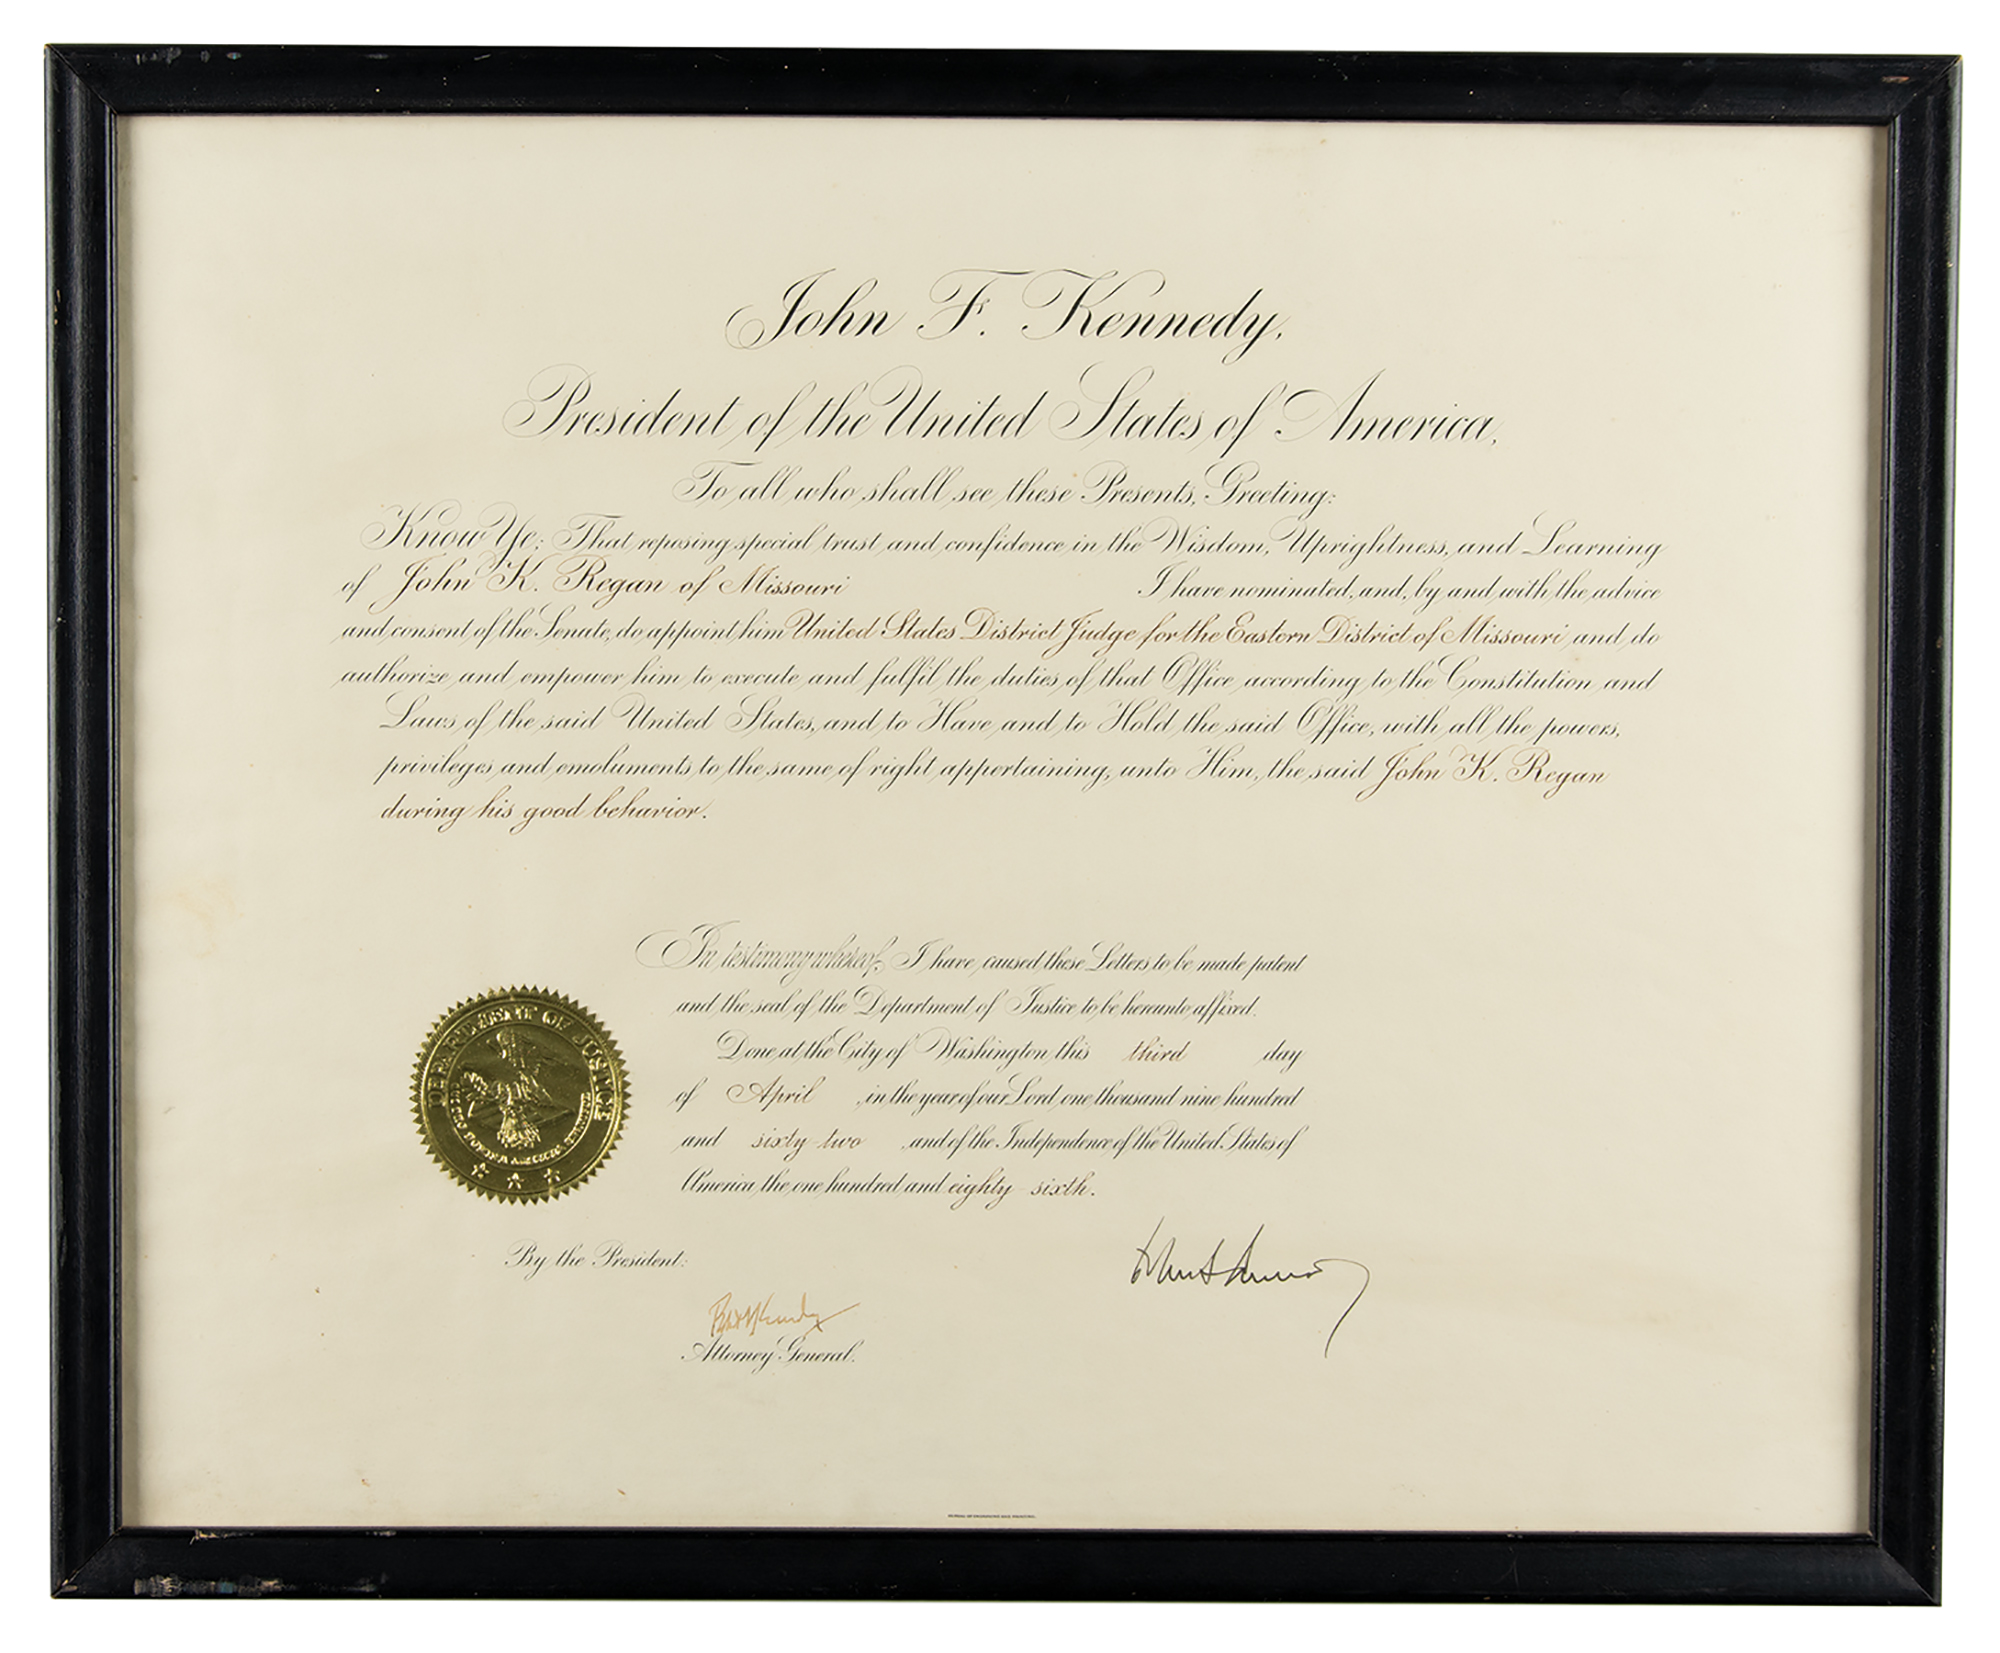 John F. Kennedy,
President of the United States of America,
To all who shall see these Presents, Greeting:
Know Ye; That reposing special trust and confidence in the Wisdom, Uprightness, and Learning
of John K. Regan of Missouri I have nominated, and, by and with the advice
and consent of the Senate, do appoint him United States District Judge for the Eastern District of Missouri and do
authorize and empower him to execute and fulfil the duties of that Office according to the Constitution and
Laws of the said United States, and to Have and to Hold the said Office, with all the powers,
privileges and emoluments to the same of right appertaining, unto Him, the said John K. Regan
during his good behavior.
In testimony whereof, I have caused these Letters to be made patent
and the seal of the Department of Justice to be hereunto affixed.
Done at the City of Washington this third day
of April , in the year of our Lord one thousand nine hundred
and sixty-two , and of the Independence of the United States of
America the one hundred and eighty-sixth.
DEPARTMENT OF JUSTICE
QUI PRO DOMINA JUSTITIA SEQUITUR
By the President:
Attorney General.
BUREAU OF ENGRAVING AND PRINTING